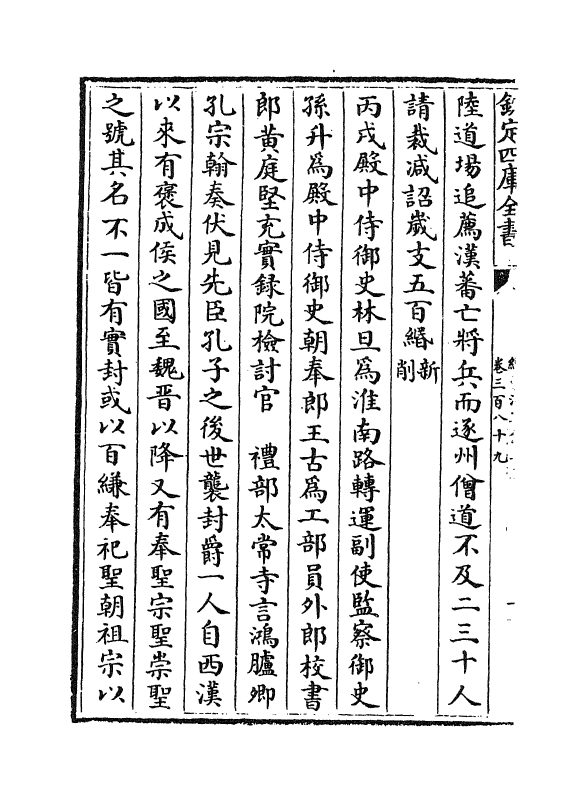 欽定四庫全書
卷三百八十九
陸道場追薦漢蕃亡將兵而逐州僧道不及二三十人
請裁减詔歲支五百緡新削
丙戌殿中侍御史林旦為淮南路轉運副使監察御史
孫升為殿中侍御史朝奉郎王古為工部員外郎校書
郎黃庭堅充實録院檢討官　禮部太常寺言鴻臚卿
孔宗翰奏伏見先臣孔子之後世襲封爵一人自西漢
以來有褒成侯之國至魏晉以降又有奉聖宗聖崇聖
之號其名不一皆有實封或以百縑奉祀聖朝祖宗以